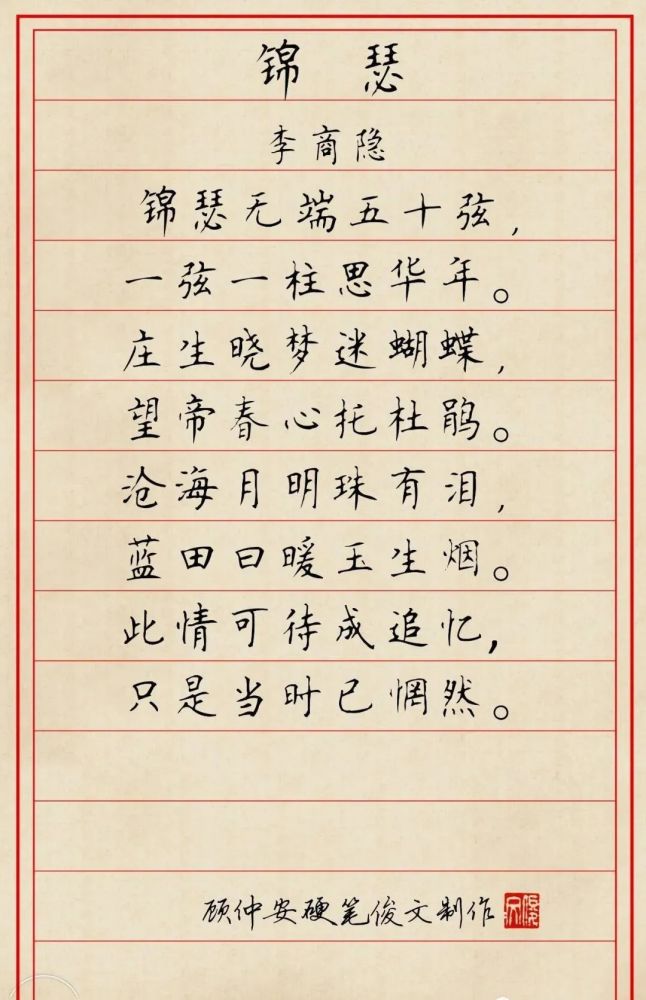 锦 瑟
李商隐
锦瑟无端五十弦,
一弦一柱思华年。
庄生晓梦迷蝴蝶,
望帝春心托杜鹃。
沧海月明珠有泪,
蓝田日暖玉生烟。
此情可待成追忆,
只是当时已惘然。
顾仲安硬笔俊文制作